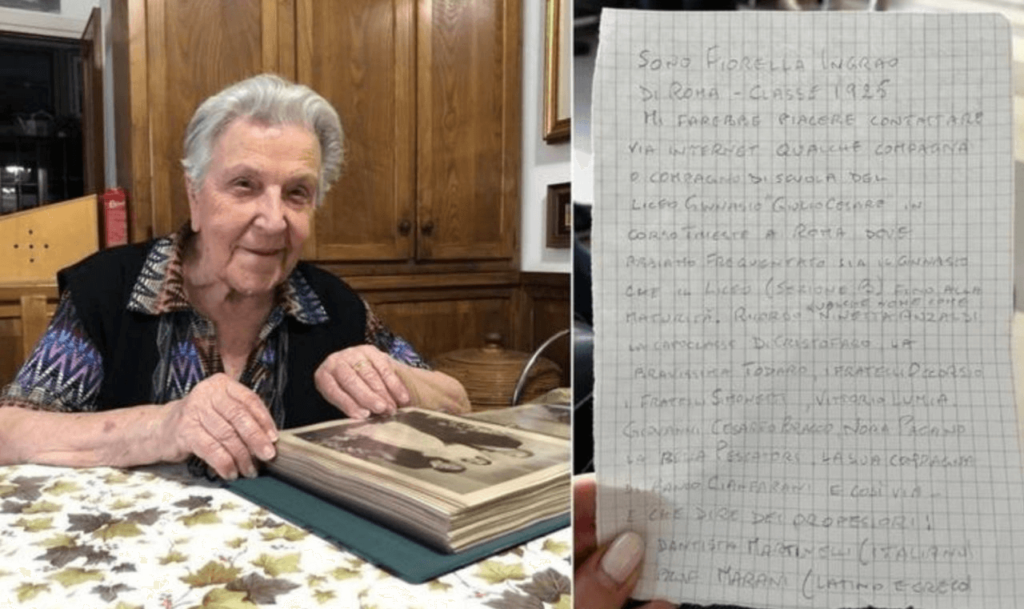 SONO FIORELLA INGRAO
DI ROMA - CLASSE 1925
MI FAREBBE PIACERE CONTATTARE
VIA INTERNET QUALCHE COMPAGNA
O COMPAGNO DI SCUOLA DEL
LICEO GINNASIO "GIULIO CESARE" IN
CORSO TRIESTE A ROMA DOVE
ABBIAMO FREQUENTATO SIA IL GINNASIO
CHE IL LICEO (SEZIONE B) FINO ALLA
MATURITÀ. RICORDO QUALCHE NOME COME NINETTA ANZALDI
LA CAPOCLASSE DI CRISTOFARO, LA
BRAVISSIMA TODARO, I FRATELLI OCCORSIO
I FRATELLI SIMONETTI, VITTORIO LUMIA,
GIOVANNI CESAREO BRACCO, NORA PAGANO
LA BELLA PESCATORI, LA SUA COMPAGNA
DI BANCO CIANFARANI E COSÌ VIA
E CHE DIRE DEI PROFESSORI!
DANTISTA MARTINELLI (ITALIANO)
MARANI (LATINO E GRECO)